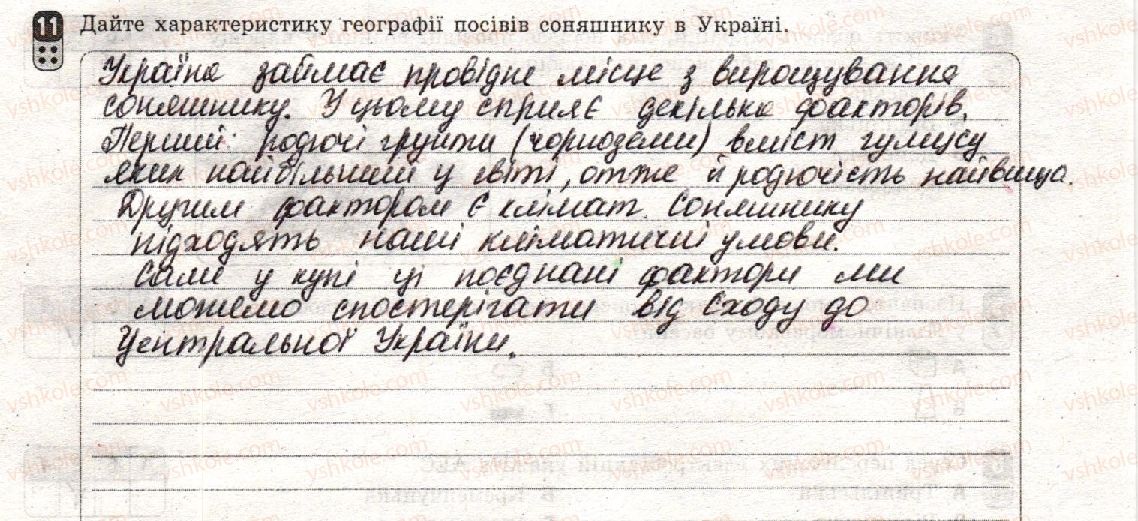 11 Дайте характеристику географії посівів соняшнику в Україні.
Україна займає провідне місце з вирощування
соняшнику. У цьому сприяє декілька факторів.
Перший: родючі грунти (чорноземи) вміст гумусу
яких найбільший у світі, отже й родючість найвища.
Другим фактором є клімат. Соняшнику
підходять наші кліматичні умови.
Саме у купі ці поєднані фактори ми
можемо спостерігати від Сходу до
Центральної України.
vshkole.com